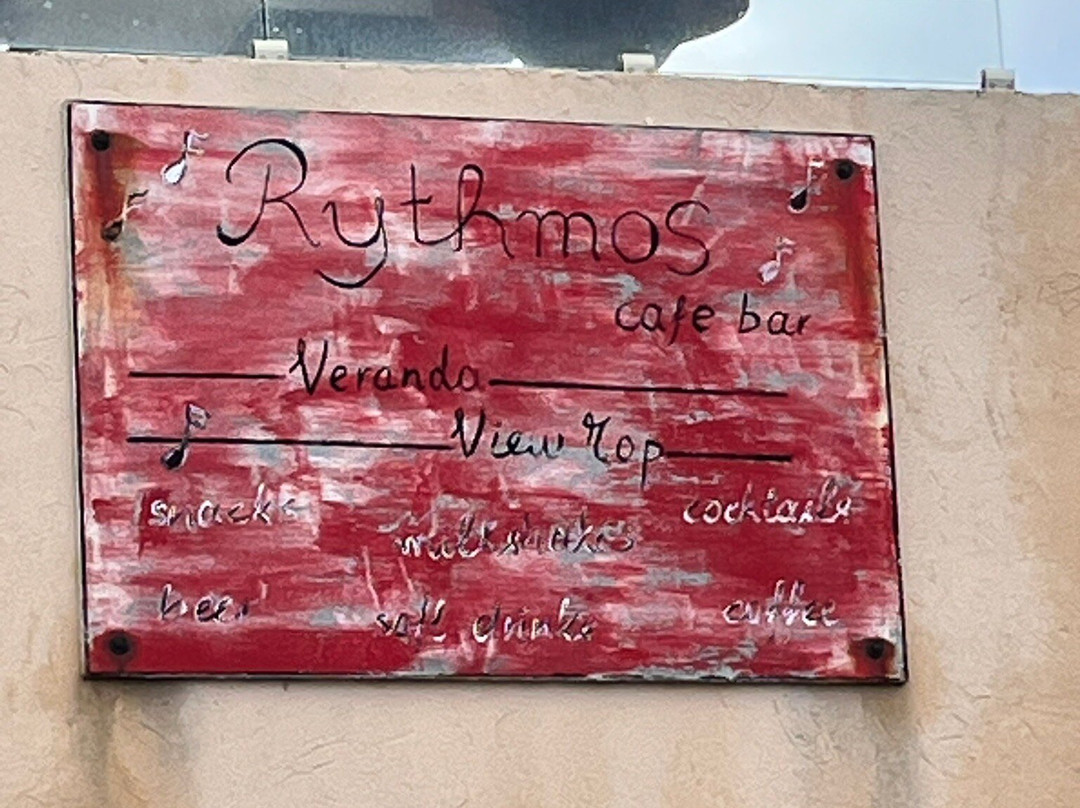 Rythmos
cafe bar
Veranda
View Top
snacks milkshakes cocktails
beer soft drinks coffee